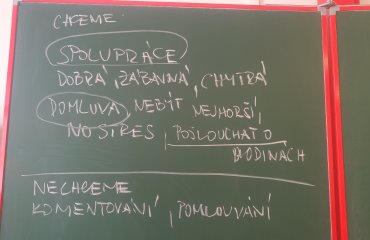 CHCEME:
SPOLUPRÁCE
DOBRÁ, ZÁBAVNÁ, CHYTRÁ
DOMLUVA, NEBÝT NEJHORŠÍ,
NO STRES, POSLOUCHAT O
HODINÁCH
NECHCEME
KOMENTOVÁNÍ, POMLOUVÁNÍ